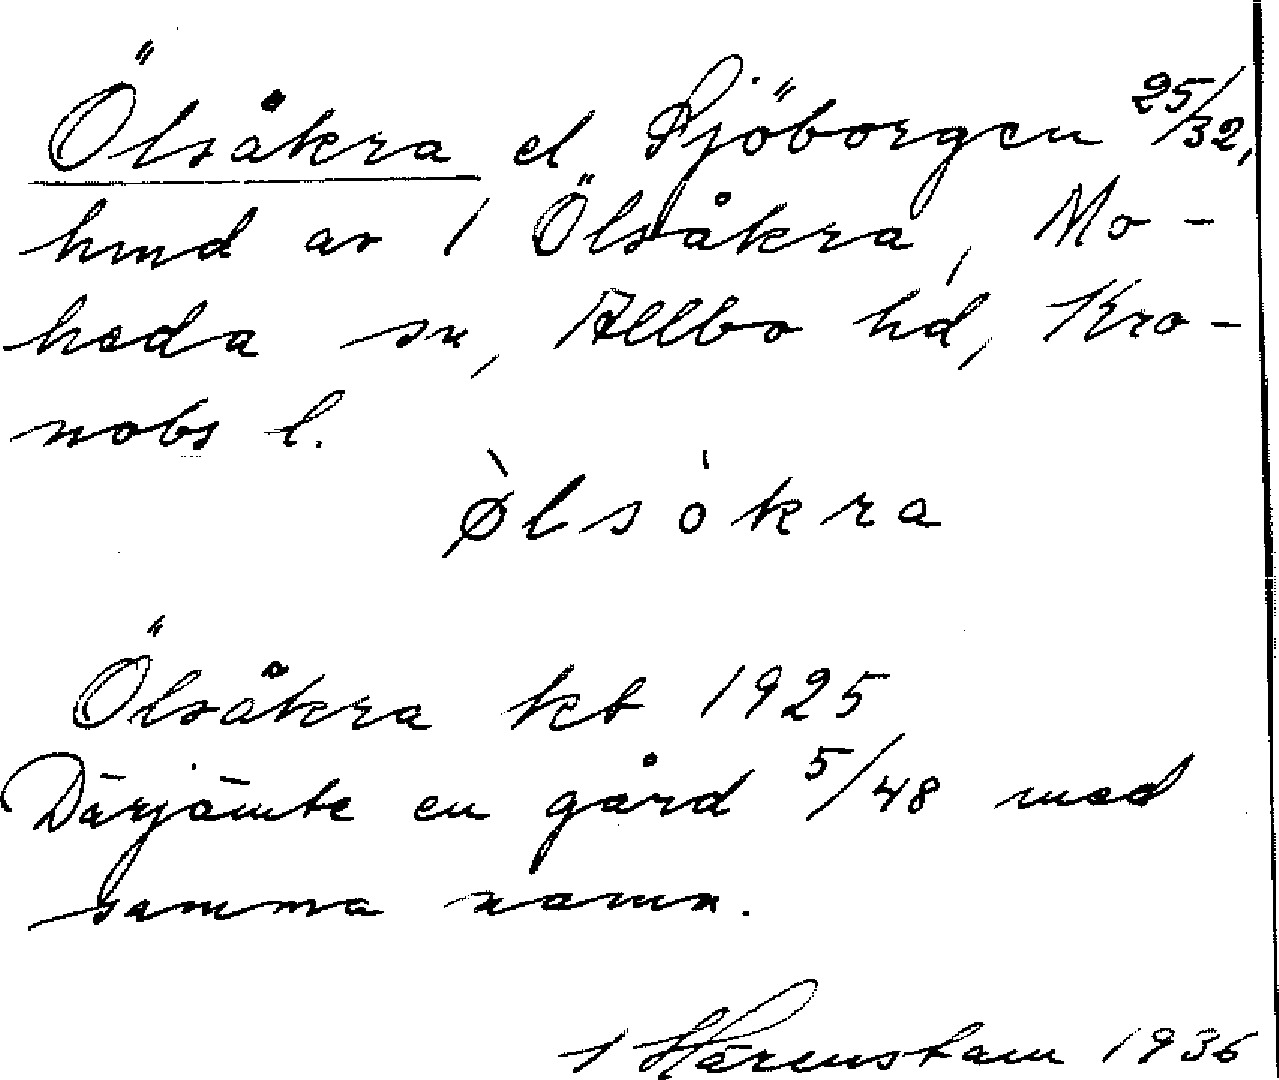 Ölsåkra el Sjöborgen 25/32,
hmd av 1 Ölsåkra, Mo-
heda sn, Allbo hd, Kro-
nobs l.
Ø̀lsòkra
Ölsåkra kt 1925
Därjämte en gård 5/48 med
samma namn.
Härenstam 1936